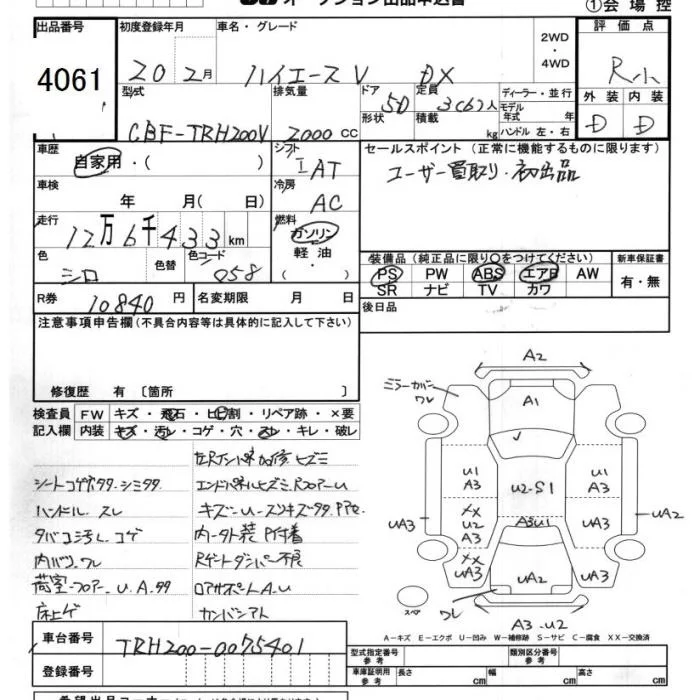 オークション出品申込書
①会場控
出品番号
4061
初度登録年月
20 2月
車名・グレード
ハイエースV DX
2WD
・
4WD
評価点
R小
外装 内装
D D
型式
CBF-TRH200V
排気量
2000 cc
ドア
形状
5D
定員
積載
3(6)人
kg
ディーラー・並行
モデル
年式 年
ハンドル 左・右
車歴
自家用・( )
シフト
IAT
車検
年 月( 日)
冷房
AC
走行
12万6千433 km
燃料
ガソリン
軽油
( ・ )
色
シロ
色替
色コード
058
R券
10840 円
名変期限 月 日
セールスポイント (正常に機能するものに限ります)
ユーザー買取り・初出品
装備品 (純正品に限り○をつけてください)
PS PW ABS エアB AW
SR ナビ TV カワ
新車保証書
有・無
後日品
注意事項申告欄 (不具合内容等は具体的に記入して下さい)
修復歴 有 〔箇所 〕
検査員
記入欄
FW キズ・飛石・ヒビ割・リペア跡・×要
内装 キズ・汚レ・コゲ・穴・スレ・キレ・破レ
シートコゲ穴タタ・シミタタ
ハンドル スレ
タバコ汚レ コゲ
内バリ ワレ
荷室・フロアー U.A.タタ
床上ゲ
エンドパネルヒズミ.RフロアーU
Rゲートダンパー不良
ロアサポートA.U
カンバンアト
A2
ミラーカバー
ワレ
A1
U1
A3
U2-S1
U1
A3
XX
U2
A3
UA3
A3U1
UA3
UA2
XX
UA3
UA2
UA3
スペア
ワレ
A3-U2
A-キズ E-エクボ U-凹み W-補修跡 S-サビ C-腐食 XX-交換済
車台番号
TRH200-0075401
登録番号
型式指定番号
参考
類別区分番号
参考
車庫証明用
参考
長さ cm 幅 cm 高さ cm